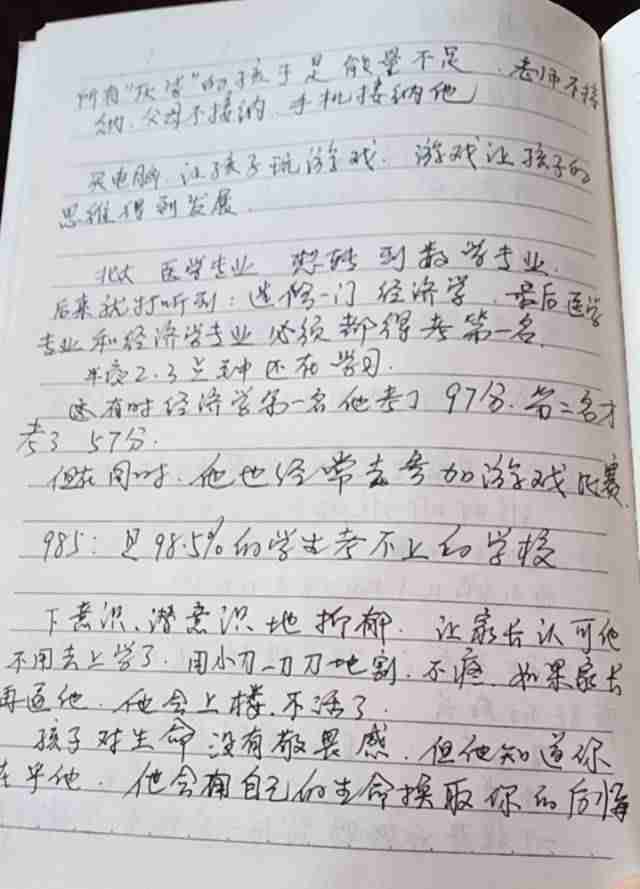 所有“厌学”的孩子是能量不足、老师不接
纳、父母不接纳、手机接纳他
买电脑、让孩子玩游戏、游戏让孩子的
思维得到发展.
北大 医学专业 想转到数学专业.
后来就打听到:选修一门经济学、最后医学
专业和经济学专业必须都得考第一名.
半夜2.3点钟还在学习.
还有时经济学第一名他考了97分.第二名才
考了57分.
但在同时、他也经常去参加游戏比赛.
985:是98.5%的学生考不上的学校
下意识、潜意识地抑郁、让家长认可他
不用去上学了.用小刀一刀刀地割.不疼.如果家长
再逼他、他会上楼.不活了.
孩子对生命没有敬畏感、但他知道你
在乎他、他会用自己的生命换取你的后悔